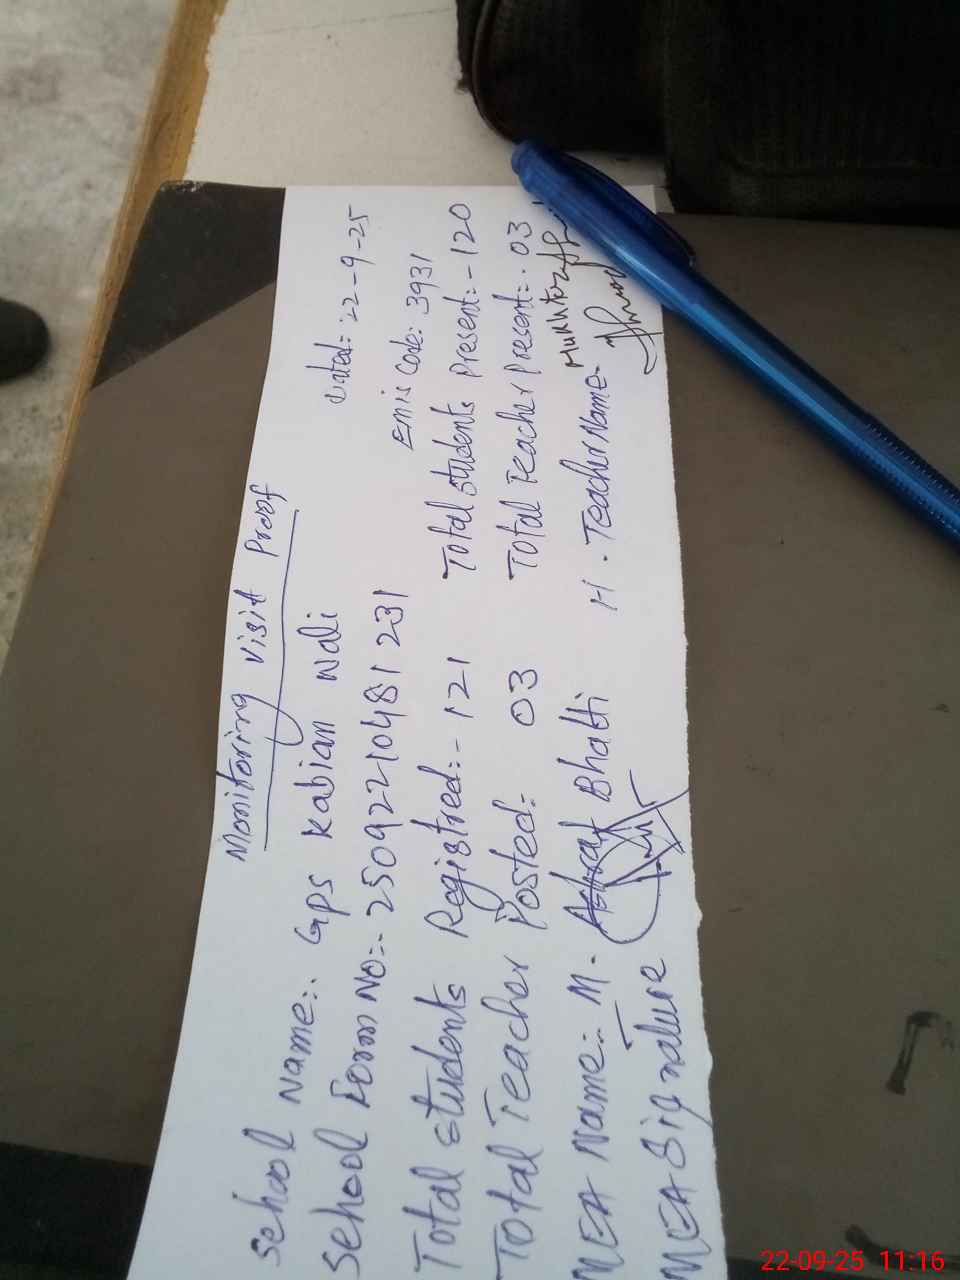 Monitoring Visit Proof
Dated:- 22-9-25
School Name:- GPS Kabian Wali
Emis Code:- 3931
School Form No:- 25092210481231
Total Students Registred:- 121 Total Students Present:- 120
Total Teacher Posted:- 03 Total Teacher Present:- 03
MEA Name:- M. Ashraf Bhatti H. Teacher Name- Mukhtar
MEA Signature
22-09-25 11:16